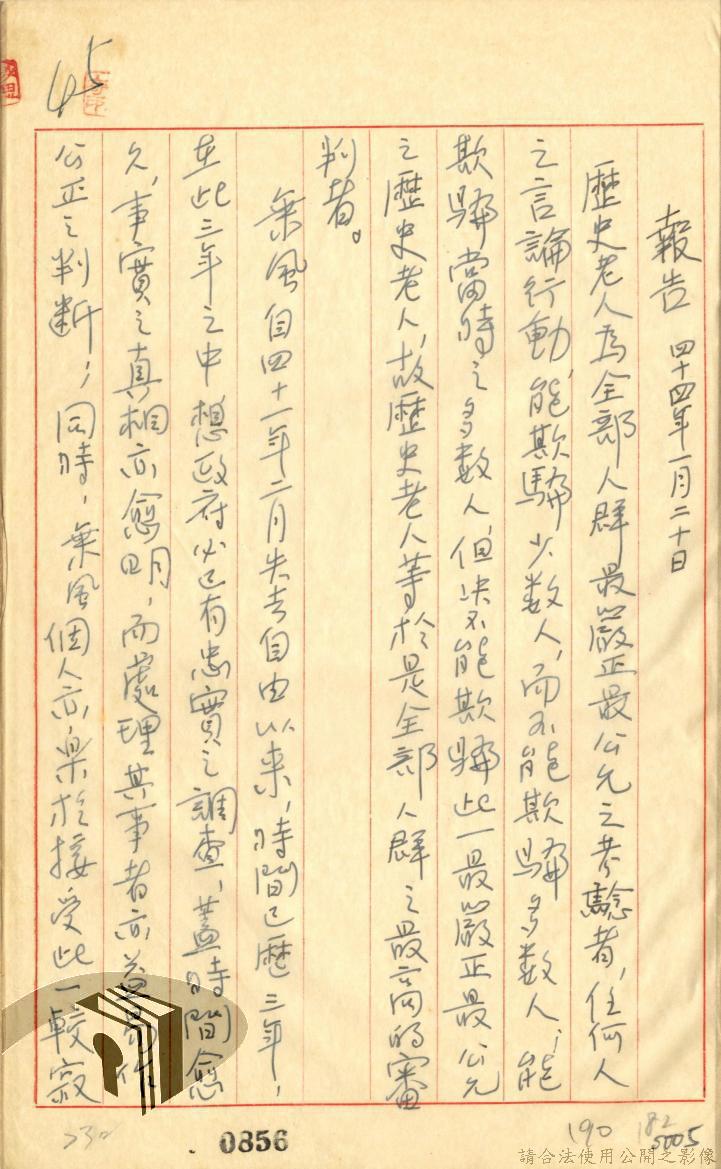 報告 四十四年一月二十日
歷史老人為全部人群最嚴正最公允之考驗者,任何人
之言論行動,能欺騙少数人,而不能欺騙多数人;能
欺騙當時之多数人,但決不能欺騙此一最嚴正最公允
之歷史老人,故歷史老人等於是全部人群之最高的審
判者。
乘風自四十一年二月失去自由以來,時間已歷三年,
在此三年之中想政府必已有忠實之調查,蓋時間愈
久,事實之真相亦愈明,而處理其事者亦益易作
公正之判断;同時,乘風個人亦樂於接受此一較寂
45
0856
230
190
182
5005
請合法使用公開之影像